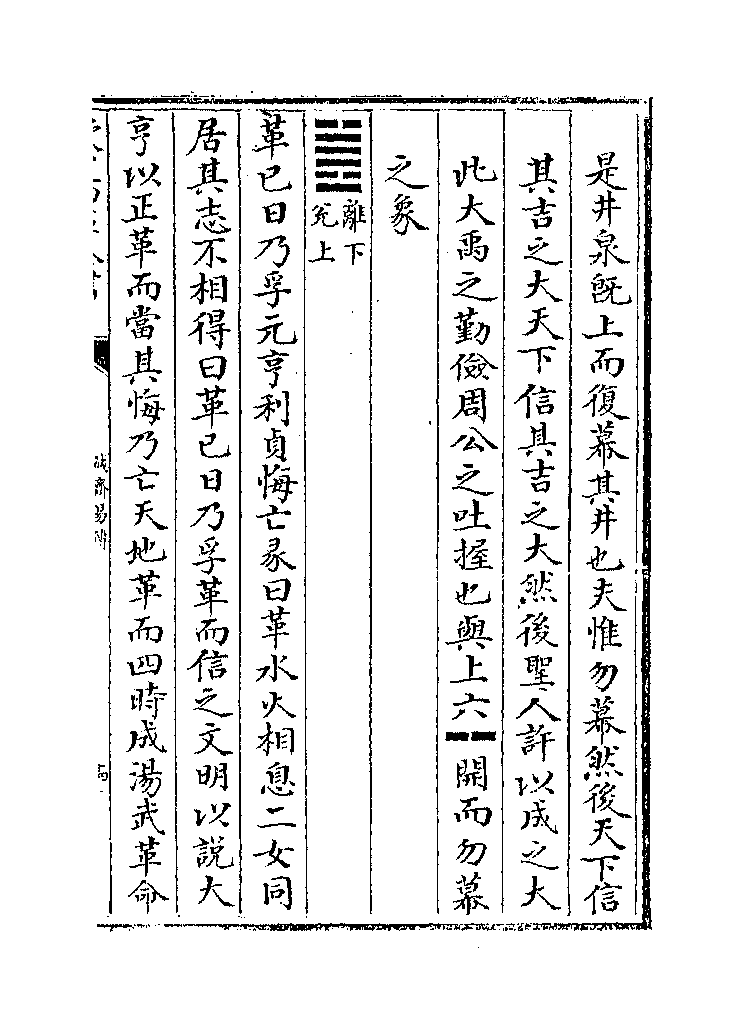 是井泉既上而復幕其井也夫惟勿幕然後天下信
其吉之大天下信其吉之大然後聖人許以成之大
此大禹之勤儉周公之吐握也與上六⚋開而勿幕
之象
䷰離下
兊上
革已日乃孚元亨利貞悔亡彖曰革水火相息二女同
居其志不相得曰革已日乃孚革而信之文明以說大
亨以正革而當其悔乃亡天地革而四時成湯武革命
誠齋易傳